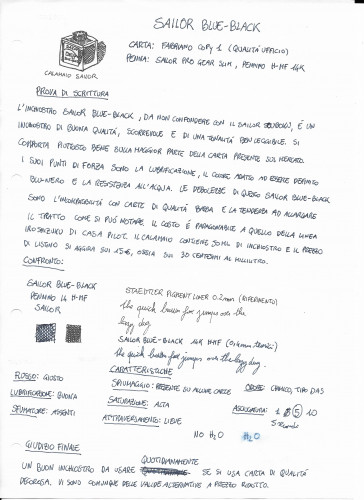 SAILOR BLUE-BLACK
CARTA: FABRIANO COPY 1 (QUALITÀ UFFICIO)
PENNA: SAILOR PRO GEAR SLIM, PENNINO H-MF 14K
CALAMAIO SAILOR
PROVA DI SCRITTURA
L'INCHIOSTRO SAILOR BLUE-BLACK, DA NON CONFONDERE CON IL SAILOR, È UN
INCHIOSTRO DI BUONA QUALITÀ, SCORREVOLE E DI UNA TONALITÀ BEN LEGGIBILE. SI
COMPORTA PIUTTOSTO BENE SULLA MAGGIOR PARTE DELLA CARTA PRESENTE SUL MERCATO.
I SUOI PUNTI DI FORZA SONO LA LUBRIFICAZIONE, IL COLORE ADATTO AD ESSERE DEFINITO
BLU-NERO E LA RESISTENZA ALL'ACQUA. LE DEBOLEZZE DI QUESTO SAILOR BLUE-BLACK
SONO L'INCOMPATIBILITÀ CON CARTE DI QUALITÀ BASSA E LA TENDENZA AD ALLARGARE
IL TRATTO COME SI PUÒ NOTARE. IL COSTO È PARAGONABILE A QUELLO DELLA LINEA
IROSHIZUKU DI CASA PILOT. IL CALAMAIO CONTIENE 50 ML DI INCHIOSTRO E IL PREZZO
DI LISTINO SI AGGIRA SUI 15€, OSSIA SUI 30 CENTESIMI AL MILLILITRO.
CONFRONTO:
SAILOR BLUE-BLACK
PENNINO 14 H-MF
SAILOR
STAEDTLER PIGMENT LINER 0.2mm (RIFERIMENTO)
the quick brown fox jumps over the
lazy dog
SAILOR BLUE-BLACK 14K HMF (0.4mm teorici)
the quick brown fox jumps over the lazy dog.
CARATTERISTICHE
FLUSSO: GIUSTO
LUBRIFICAZIONE: BUONA
SFUMATURE: ASSENTI
SPIUMAGGIO: PRESENTE SU ALCUNE CARTE
SATURAZIONE: ALTA
ATTRAVERSAMENTO: LIEVE
ODORE: CHIMICO, TIPO DAS
ASCIUGATURA: 1 5 10
Secondi
NO H2O H2O
GIUDIZIO FINALE
QUOTIDIANAMENTE
UN BUON INCHIOSTRO DA USARE SE SI USA CARTA DI QUALITÀ
DECOROSA. VI SONO COMUNQUE DELLE VALIDE ALTERNATIVE A PREZZO RIDOTTO.